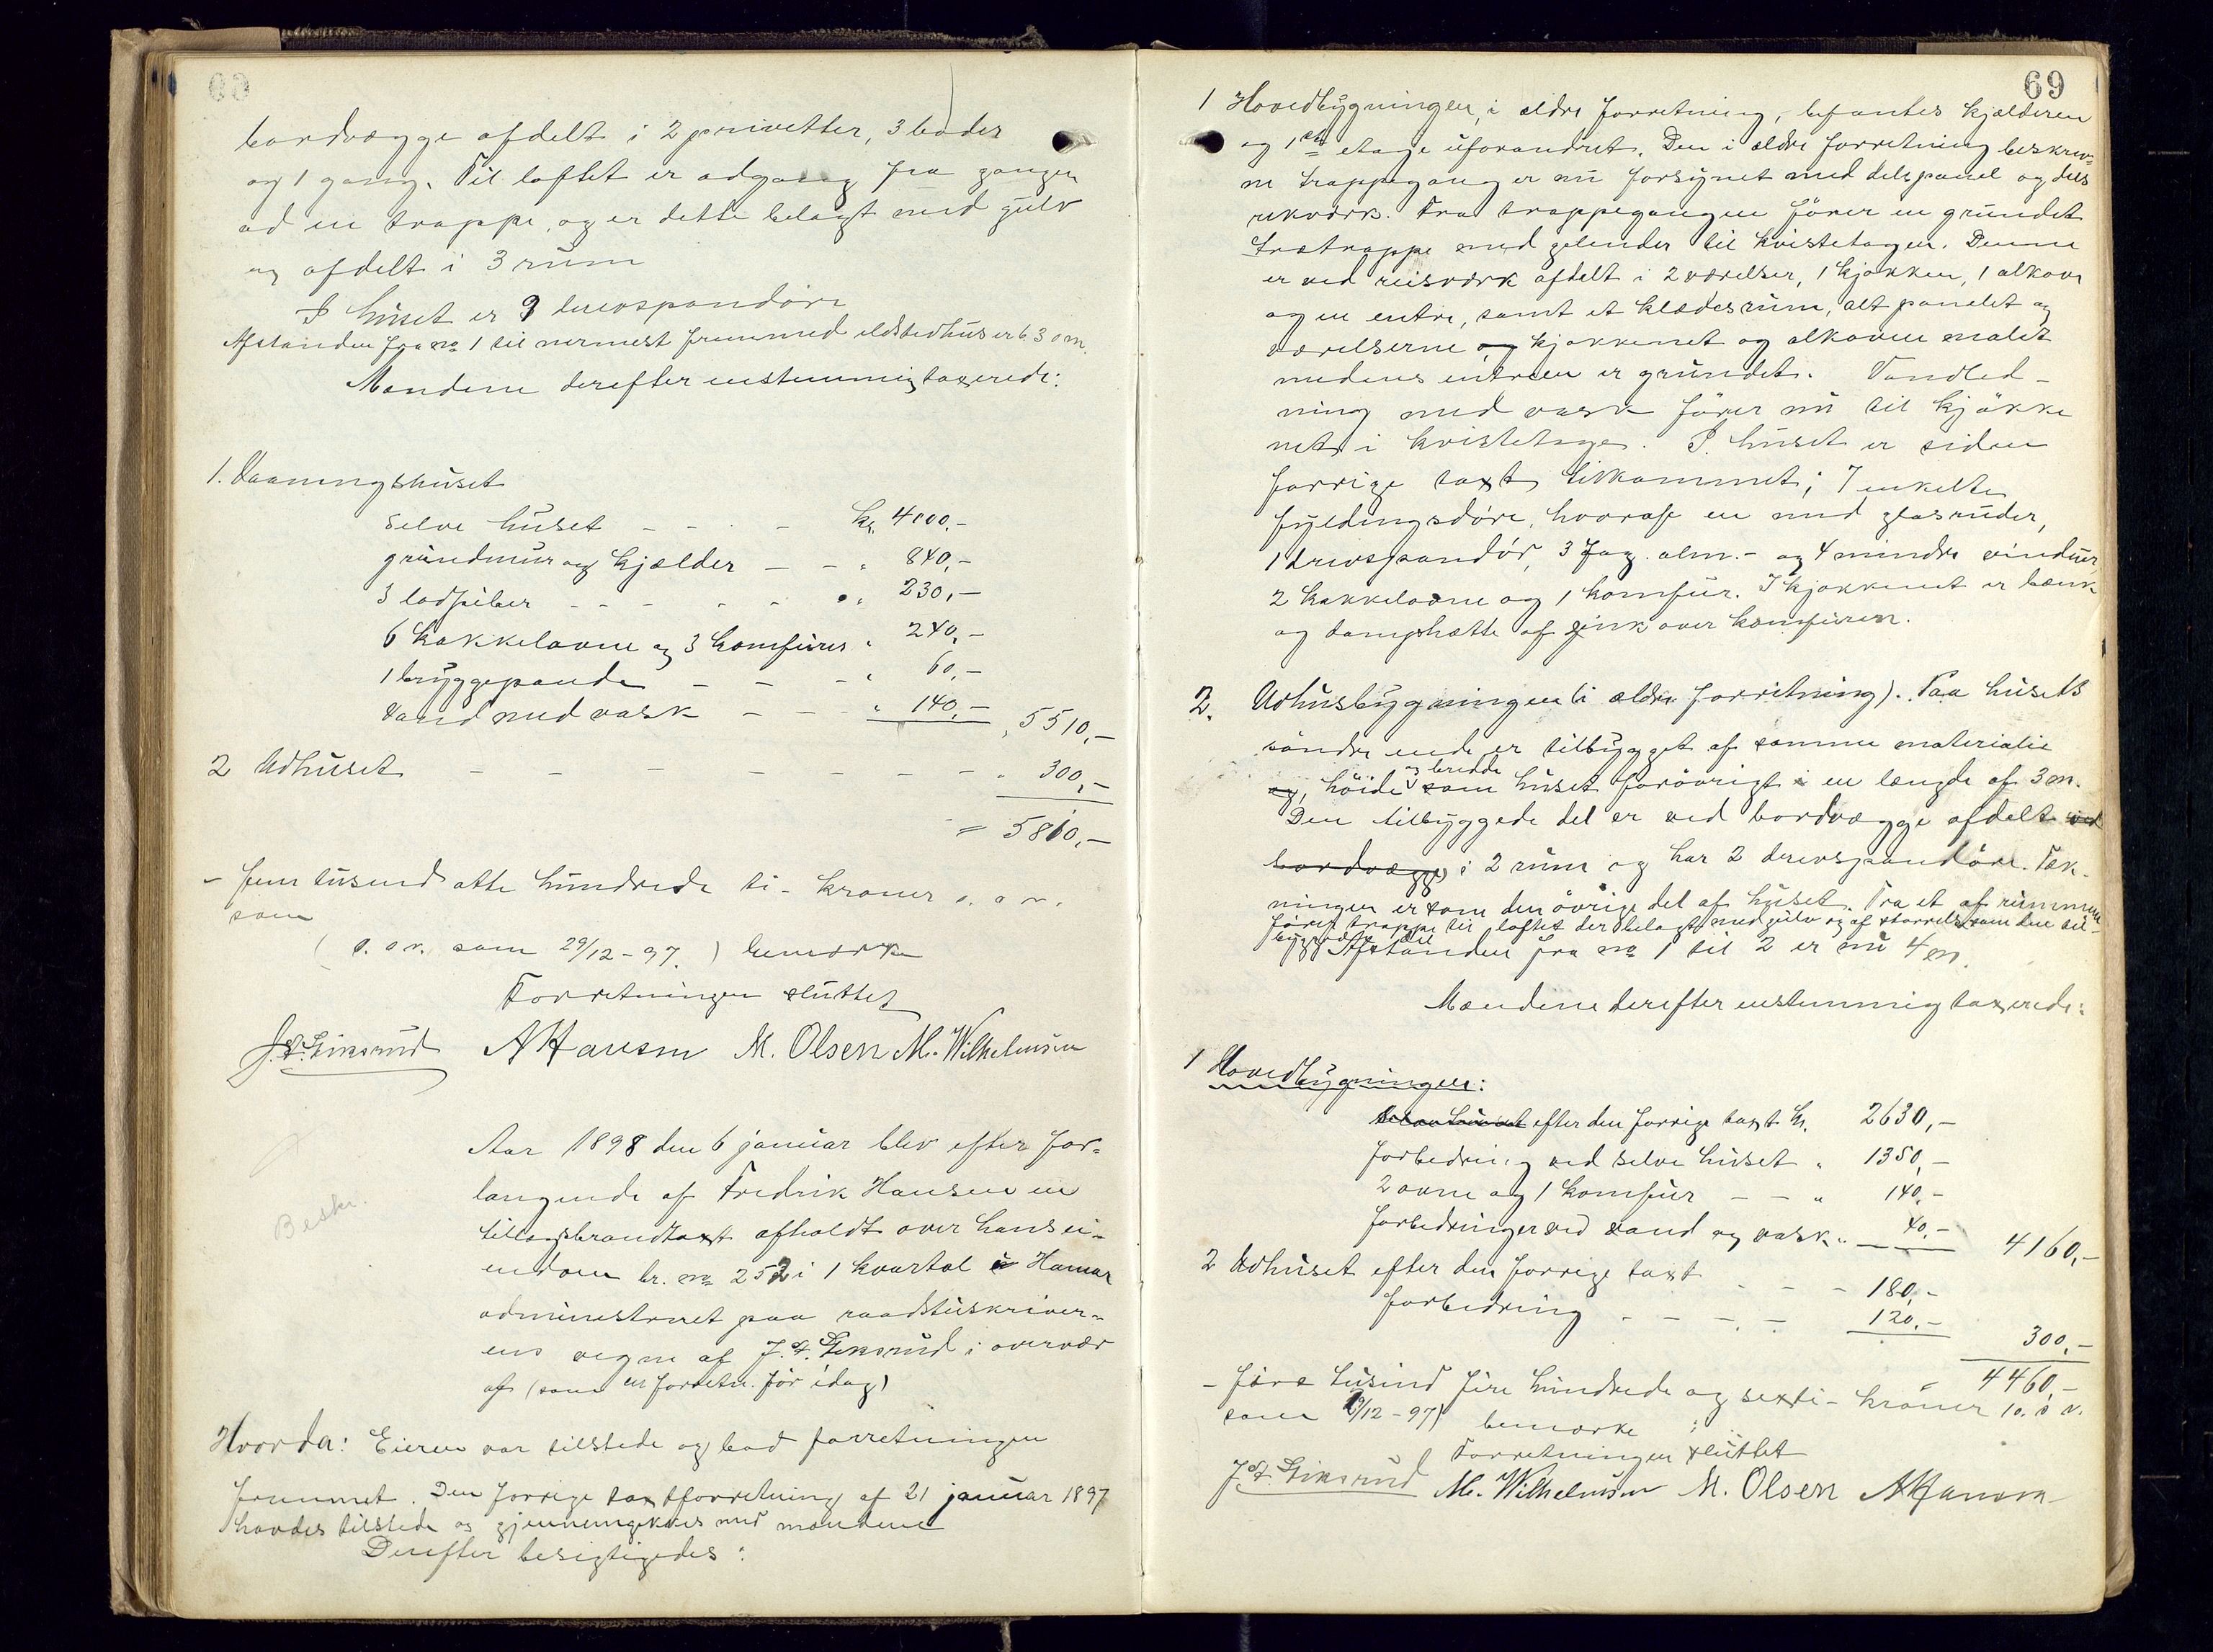 bordvægge afdelt i 2 privetter, 3 boder
og 1 gang. Til loftet er adgang fra gangen
ad en trappe, og er dette belagt med gulv
og afdelt i 3 rum
I huset er 9 drevspandøre
Afstanden fra no 1 til nermest fremmed ildstedhus er 6.30 m.
Mændene derefter enstemmig taxerede:
1. Vaaningshuset
selve huset - - - kr. 4000,-
grundmur og kjælder - - " 840,-
3 ladpiber - - - - - " 230,-
6 kakkelovne og 3 komfurer " 240,-
1 bryggepande - - - " 60,-
Vand med vask - - - " 140,- " 5510,-
2 Udhuset - - - - - - - " 300,-
= 5810,-
- fem tusend otte hundrede ti - kroner s. o. v.
som
( s. o. v. som 29/12-97. ) bemærke
Forretningen sluttet
A Hansen M. Olsen M. Wilhelmsen
Aar 1898 den 6 januar blev efter for-
langende af Fredrik Hansen en
tillægsbrandtaxt afholdt over hans ei-
endom br. no 252 i 1 kvartal i Hamar
administreret paa raadstuskriver-
ens vegne af J. F. i overvær
af (som en forretn. før idag)
Beskr.
Hvorda: Eieren var tilstede og bad forretningen
fremmet. Den forrige taxtforretning af 21 januar 1897
havdes tilstede og gjennemgikkes med mændene
Derefter besigtigedes:
69
1 Hovedbygningen, i ældre forretning, befantes kjælderen
og 1ste etage uforandret. Den i ældre forretning beskrev-
ne trappegang er nu forsynet med dels panel og dels
rekværk. Fra trappegangen fører en grundet
trætrappe med gelender til kvistetagen. Denne
er ved reisværk afdelt i 2 værelser, 1 kjøkken, 1 alkove
og en entre, samt et klædesrum, alt panelet og
værelserne og kjøkkenet og alkoven malet
medens entreen er grundet. Vandled-
ning med vask fører nu til kjøkke
net i kvistetage. I huset er siden
forrige taxt tilkommet; 7 enkelte
fyldingsdøre, hvoraf en med glasruder,
1 drevspandør, 3 fag. alm.- og 4 mindre vinduer,
2 kakkelovne og 1 komfur. I kjøkkenet er bænk
og damphætte af zink over komfuren.
2. Udhusbygningen (i ældre forretning). Paa husets
søndre ende er tilbygget af samme materialie
og, høide og bredde som huset forøvrigt i en længde af 3 m.
Den tilbyggede del er ved bordvægge afdelt ved
bordvægge i 2 rum og har 2 drevspandøre. Tæk-
ningen er som den øvrige del af huset. Fra et af rummene
fører trappe til loftet der belagt med gulv og af størrelse som den til-
byggede del
Afstanden fra no 1 til 2 er nu 4 m.
Mændene derefter enstemmig taxerede:
1 Hovedbygningen:
selve huset efter den forrige taxt kr. 2630,-
forbedring ved selve huset " 1350,-
2 ovne og 1 komfur - - " 140,-
forbedringer ved vand og vask " 40,- 4160,-
2 Udhuset efter den forrige taxt - - - 180,-
forbedring - - - - 120,- 300,-
= 4460,-
- fire tusind fire hundrede og sexti - kroner s. o. v.
som 29/12-97) bemærke :
Forretningen sluttet
M. Wilhelmsen M. Olsen A Hansen